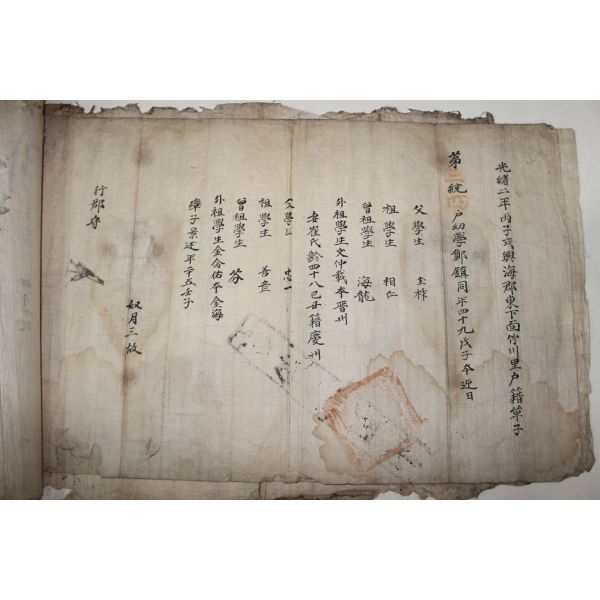 光緖二年丙子式興海郡東下面竹川里戶籍單子
第三統四戶幼學鄭鎭同年四十九戊子本迎日
父學生
祖學生 相仁
曾祖學生 海龍
外祖學生文仲載本晋州
妻崔氏齡四十八己丑籍慶州
父學生 忠一
祖學生
曾祖學生 芬
外祖學生金 佑本金海
率子景述年 五壬子
奴月三故
行郡守